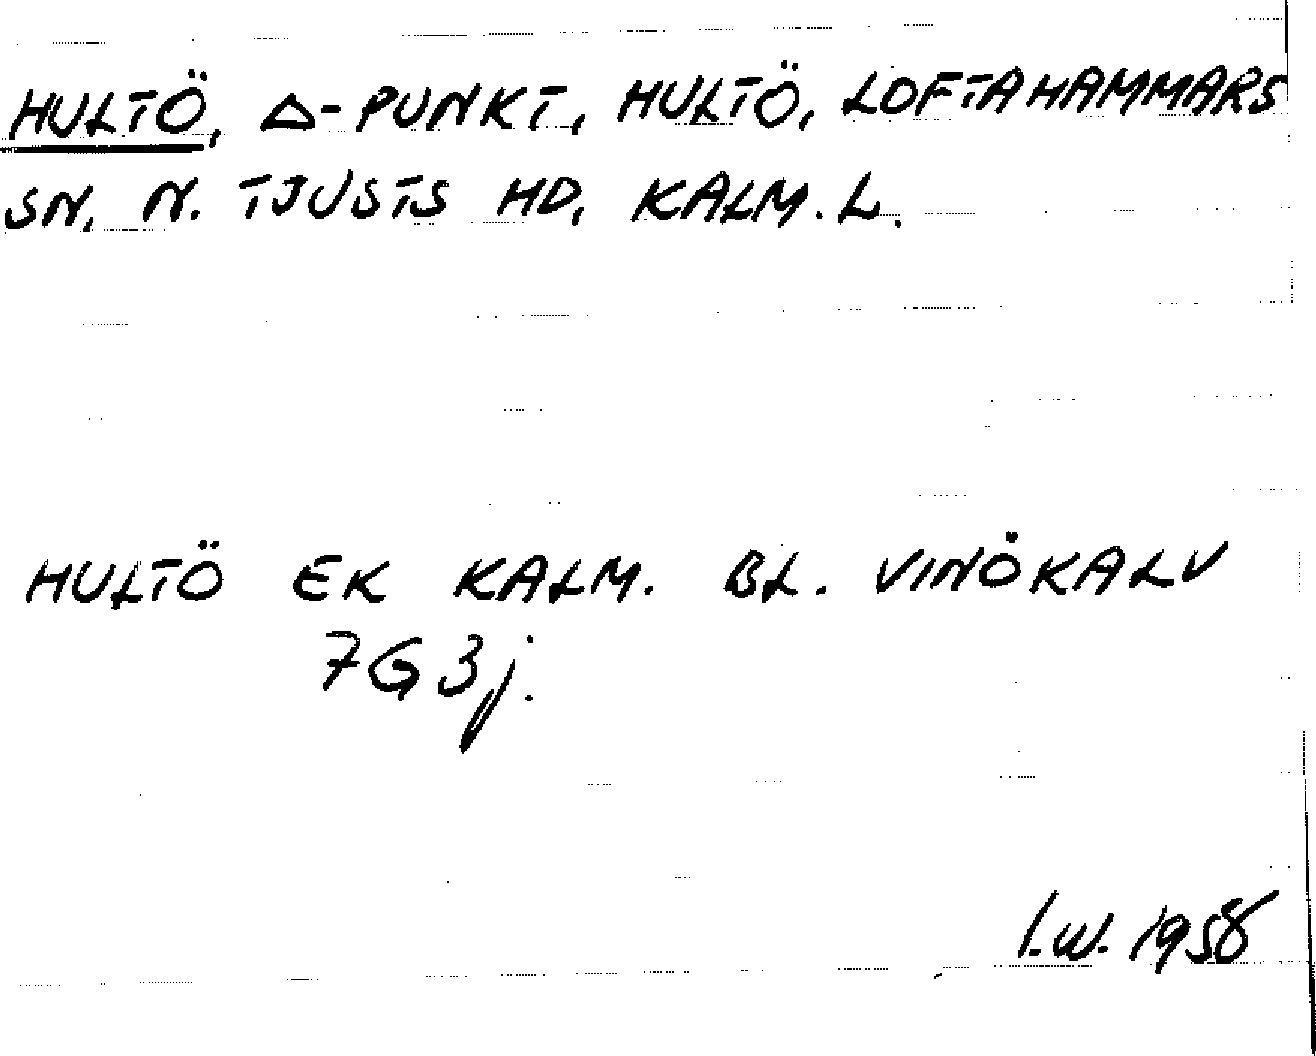 HULTÖ, Δ-PUNKT, HULTÖ, LOFTAHAMMARS
SN, N. TJUSTS HD, KALM. L.
HULTÖ EK KALM. BL. VINÖKALV
7G3j.
I.W. 1958